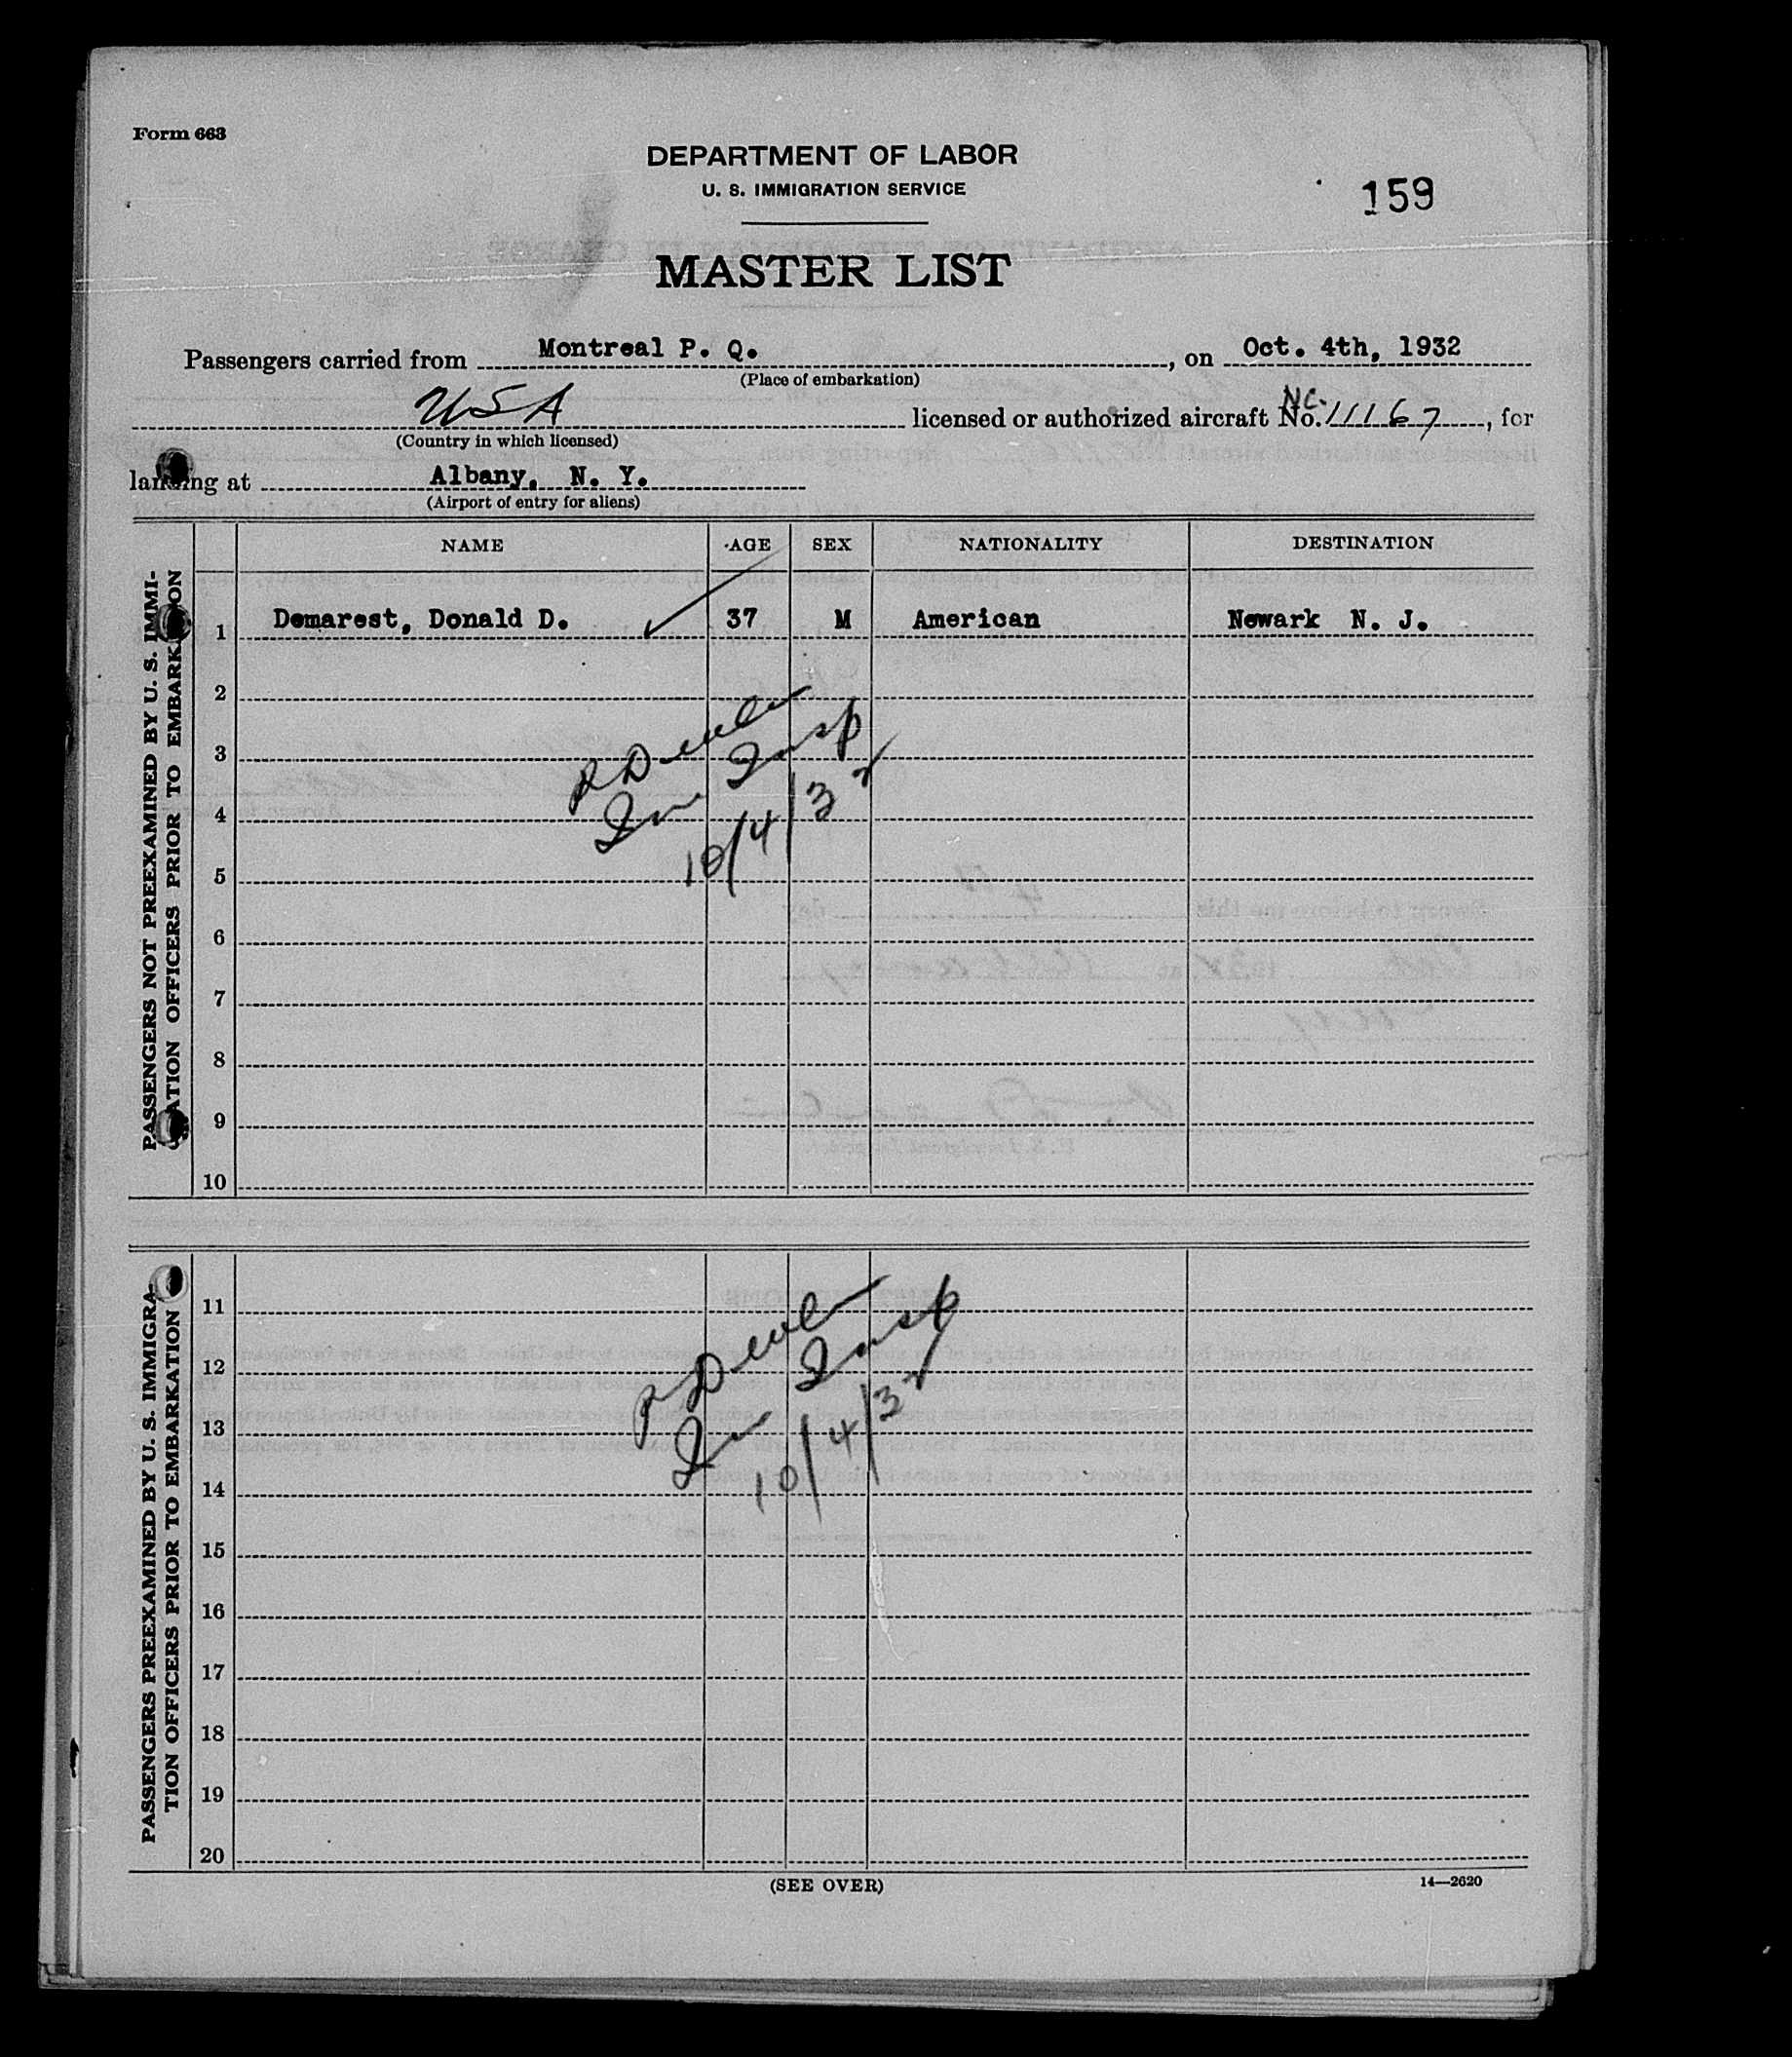 Form 663
DEPARTMENT OF LABOR
U. S. IMMIGRATION SERVICE
159
MASTER LIST
Passengers carried from Montreal P. Q., on Oct. 4th, 1932
(Place of embarkation)
USA licensed or authorized aircraft No. NC. 11167, for
(Country in which licensed)
landing at Albany, N. Y.
(Airport of entry for aliens)
NAME AGE SEX NATIONALITY DESTINATION
PASSENGERS NOT PREEXAMINED BY U. S. IMMI-
GRATION OFFICERS PRIOR TO EMBARKATION
1 Demarest, Donald D. 37 M American Newark N. J.
2
3
4
5
6
7
8
9
10
Imm Insp
10/4/32
PASSENGERS PREEXAMINED BY U. S. IMMIGRA-
TION OFFICERS PRIOR TO EMBARKATION
11
12
13
14
15
16
17
18
19
20
Imm Insp
10/4/32
(SEE OVER)
14—2620